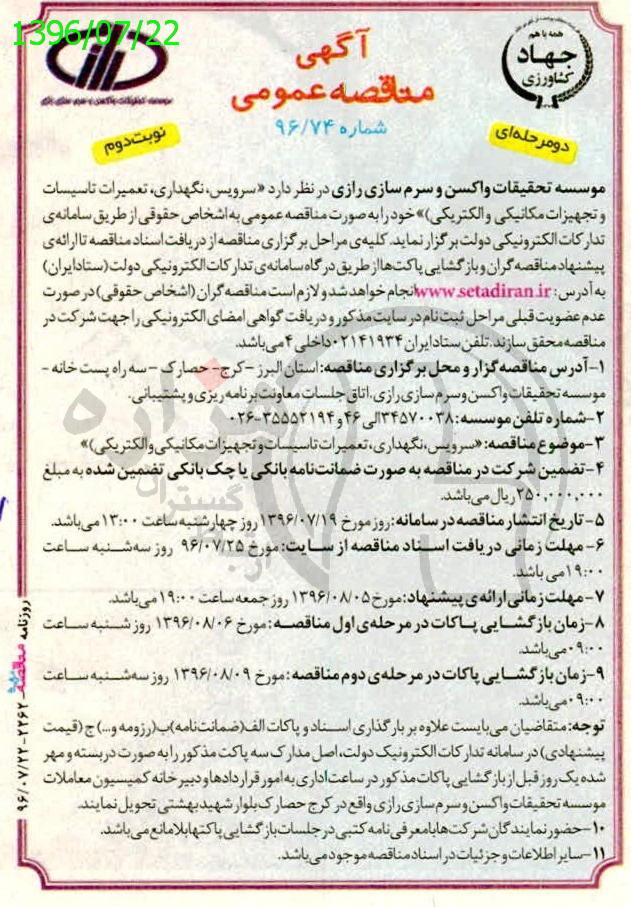 1396/07/22
همه با هم
جهاد
کشاورزی
آگهی
مناقصه عمومی
شماره ۹۶/۷۴
دومرحله‌ای
نوبت دوم
موسسه تحقیقات واکسن و سرم سازی رازی در نظر دارد «سرویس، نگهداری، تعمیرات تاسیسات
و تجهیزات مکانیکی و الکتریکی)» خود را به صورت مناقصه عمومی به اشخاص حقوقی از طریق سامانه‌ی
تدارکات الکترونیکی دولت برگزار نماید. کلیه‌ی مراحل برگزاری مناقصه از دریافت اسناد مناقصه تا ارائه‌ی
پیشنهاد مناقصه گران و بازگشایی پاکت‌ها از طریق درگاه سامانه‌ی تدارکات الکترونیکی دولت (ستاد ایران)
به آدرس: www.setadiran.ir انجام خواهد شد و لازم است مناقصه گران (اشخاص حقوقی) در صورت
عدم عضویت قبلی مراحل ثبت نام در سایت مذکور و دریافت گواهی امضای الکترونیکی را جهت شرکت در
مناقصه محقق سازند. تلفن ستاد ایران ۰۲۱۴۱۹۳۴ داخلی ۴ می‌باشد.
۱-آدرس مناقصه گزار و محل برگزاری مناقصه: استان البرز – کرج- حصارک – سه راه پست خانه -
موسسه تحقیقات واکسن و سرم سازی رازی. اتاق جلسات معاونت برنامه ریزی و پشتیبانی.
۲-شماره تلفن موسسه: ۳۴۵۷۰۰۳۸ الی ۴۶ و ۳۵۵۵۲۱۹۴-۰۲۶
۳-موضوع مناقصه: «سرویس، نگهداری، تعمیرات تاسیسات و تجهیزات مکانیکی و الکتریکی)»
۴-تضمین شرکت در مناقصه به صورت ضمانت‌نامه بانکی یا چک بانکی تضمین شده به مبلغ
۲۵۰,۰۰۰,۰۰۰ ریال می‌باشد.
۵-تاریخ انتشار مناقصه در سامانه: روز مورخ ۱۳۹۶/۰۷/۱۹ روز چهارشنبه ساعت ۱۳:۰۰ می‌باشد.
۶- مهلت زمانی دریافت اسناد مناقصه از سایت: مورخ ۹۶/۰۷/۲۵ روز سه‌شنبه ساعت
۱۹:۰۰ می باشد.
۷-مهلت زمانی ارائه‌ی پیشنهاد: مورخ ۱۳۹۶/۰۸/۰۵ روز جمعه ساعت ۱۹:۰۰ می‌باشد.
۸-زمان بازگشایی پاکات در مرحله‌ی اول مناقصه: مورخ ۱۳۹۶/۰۸/۰۶ روز شنبه ساعت
۰۹:۰۰ می‌باشد.
۹-زمان بازگشایی پاکات در مرحله‌ی دوم مناقصه: مورخ ۱۳۹۶/۰۸/۰۹ روز سه‌شنبه ساعت
۰۹:۰۰ می‌باشد.
توجه: متقاضیان می‌بایست علاوه بر بارگذاری اسناد و پاکات الف(ضمانت‌نامه)ب(رزومه و...) ج (قیمت
پیشنهادی) در سامانه تدارکات الکترونیک دولت، اصل مدارک سه پاکت مذکور را به صورت دربسته و مهر
شده یک روز قبل از بازگشایی پاکات مذکور در ساعت اداری به امور قراردادها و دبیرخانه کمیسیون معاملات
موسسه تحقیقات واکسن و سرم سازی رازی واقع در کرج حصارک بلوار شهید بهشتی تحویل نمایند.
۱۰-حضور نمایندگان شرکت ها با معرفی نامه کتبی در جلسات بازگشایی پاکتها بلامانع می‌باشد.
۱۱-سایر اطلاعات و جزئیات در اسناد مناقصه موجود می‌باشد.
روزنامه مناقصه ۲۲۶۲-۹۶/۰۷/۲۲
هزاره
گستران